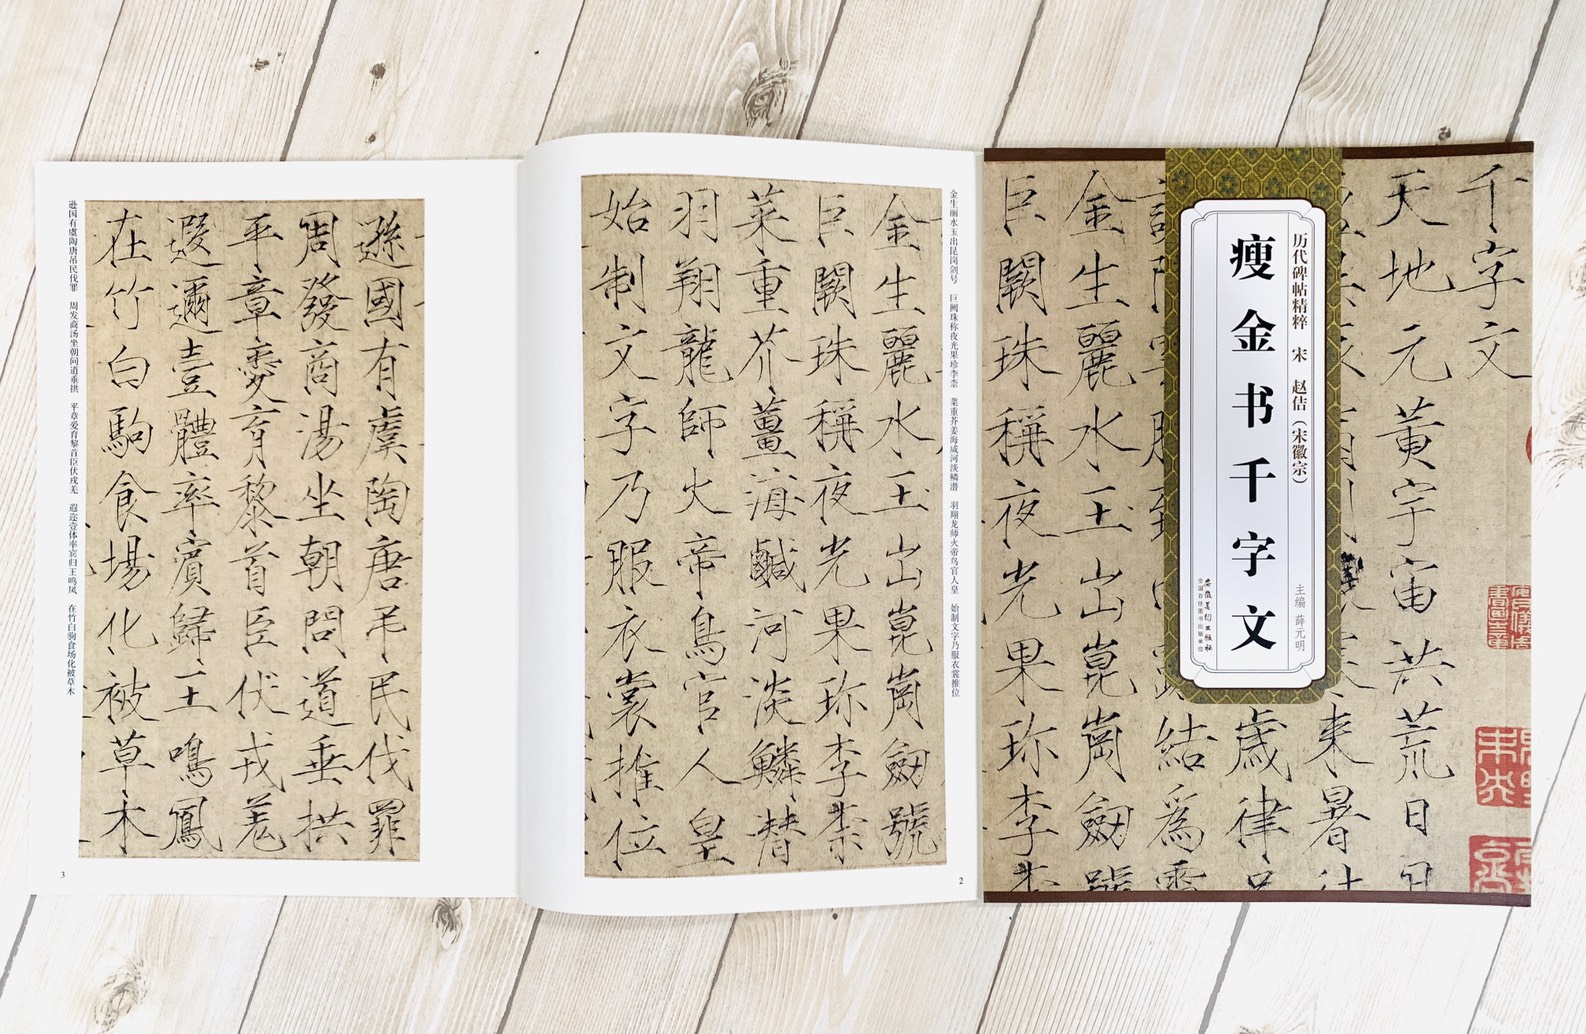 千字文
天地元黄宇宙洪荒日月
来暑往
歲律吕
結爲霜
金生麗水玉出崑崗劔號
巨闕珠稱夜光果珎李柰
历代碑帖精粹 宋 赵佶(宋徽宗)
瘦金书千字文
主编 薛元明
安徽美术出版社
全国百佳图书出版单位
金生丽水玉出昆岗剑号 巨阙珠称夜光果珍李柰 菜重芥姜海咸河淡鳞潜 羽翔龙师火帝鸟官人皇 始制文字乃服衣裳推位
金生麗水玉出崑崗劔號
巨闕珠稱夜光果珎李柰
菜重芥薑海鹹河淡鱗替
羽翔龍師火帝鳥官人皇
始制文字乃服衣裳推位
2
遜國有虞陶唐吊民伐罪
周發商湯坐朝問道垂拱
平章愛育黎首臣伏戎羌
遐邇壹體率賓歸王鳴鳳
在竹白駒食場化被草木
逊国有虞陶唐吊民伐罪 周发商汤坐朝问道垂拱 平章爱育黎首臣伏戎羌 遐迩壹体率宾归王鸣凤 在竹白驹食场化被草木
3